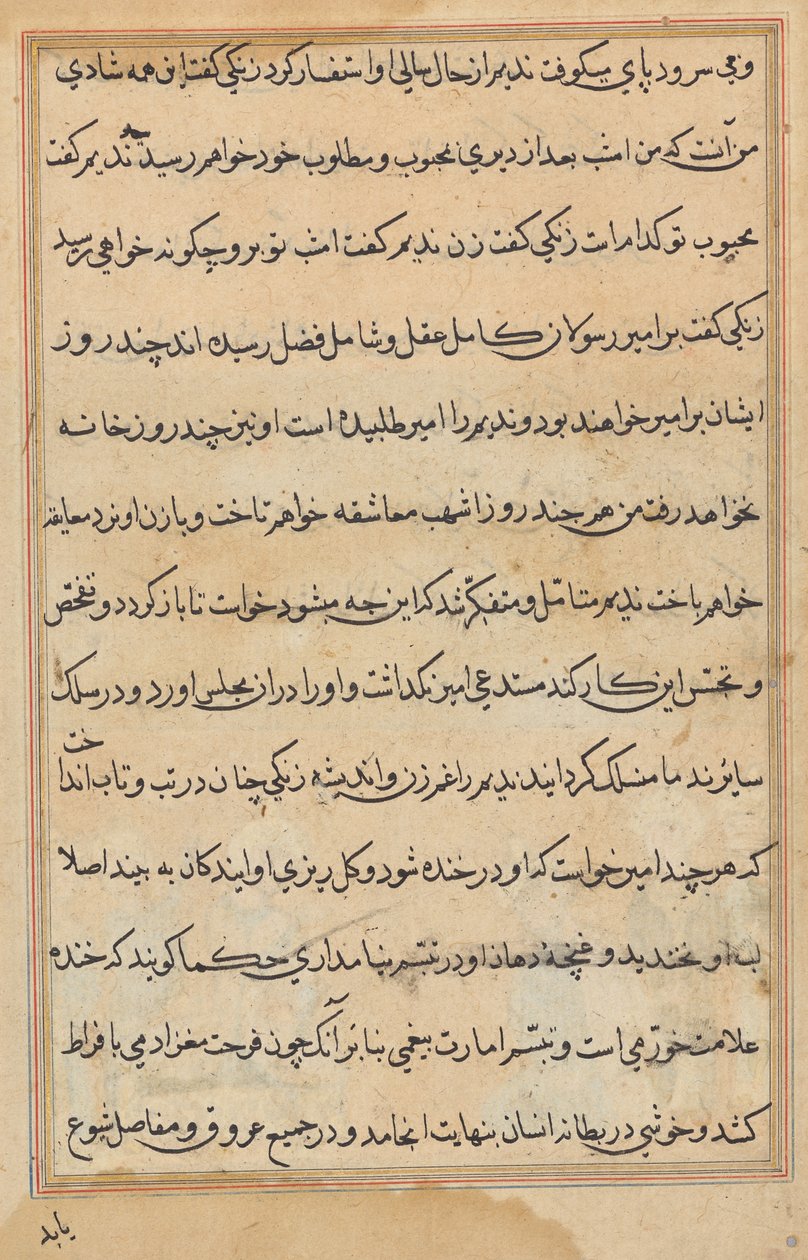 و می سرود پای میکوفت ندیم از حال سالی او استفسار کرد زنکی کفت این همه شادی
من آنست که من امشب بعد از دیری بمحبوب و مطلوب خود خواهم رسید ندیم کفت
محبوب تو کدام است زنکی کفت زن ندیم کفت امشب تو برو چکونه خواهی رسید
زنکی کفت بر امیر رسولان کامل عقل و شامل فضل رسیده اند چند روز
ایشان بر امیر خواهند بود و ندیم را امیر طلبیده است او نیز چند روز خانه
نخواهد رفت من هر چند روز اشهب معاشقه خواهم تاخت و با زن او نرد معانقه
خواهم باخت ندیم متامّل و متفکّر شد که این چه میشود خواست تا باز کردد و تفحّص
و تجسّس این کار کند مستدعی امیر نکداشت و او را در ان مجلس اورد و در سلک
سایر ندما منسلک کردانیدند ندیم را غم زن و اندیشه زنکی چنان در تب و تاب انداخت
که هر چند امیر خواست که او در خنده شود و کل ریزی او ایندکان به بیند اصلا
لب او نخندید و غنچهٔ دهان او در تبسّم نیامد اری حکما کویند که خنده
علامت خورّمی است و تبسّم امارت بیغمی بنا بر آنک چون فرحت مغز ادمی با فراط
کشد و خوشی در بطانه انسان بنهایت انجامد و در جمیع عروق و مفاصل شیوع
یابد